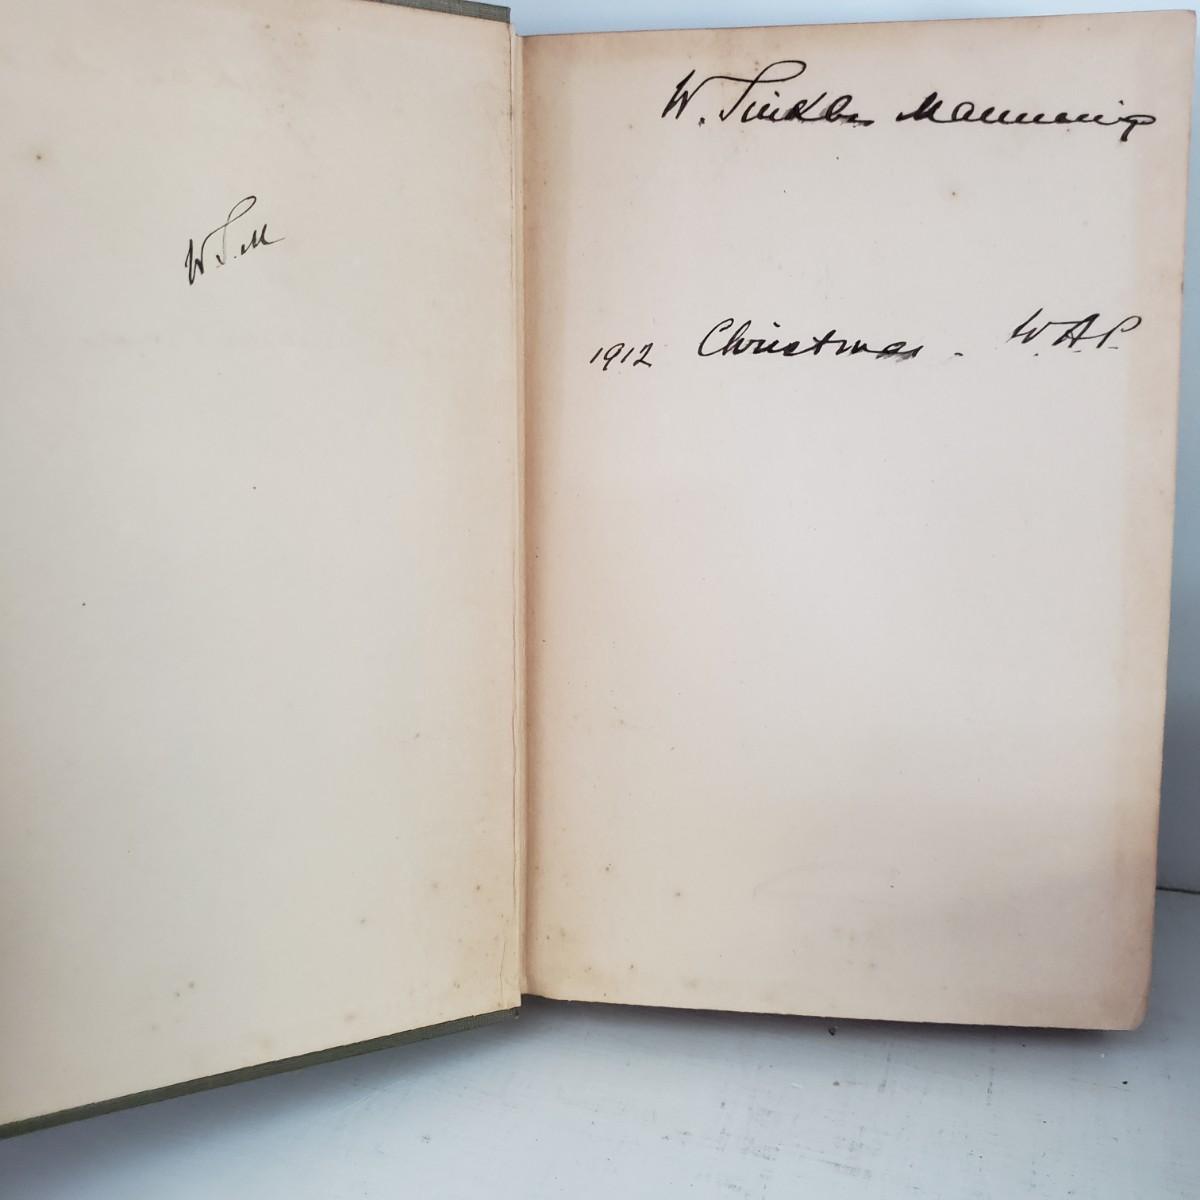 W.S.M
W. Sinkler Manning
1912 Christmas - W.A.P.